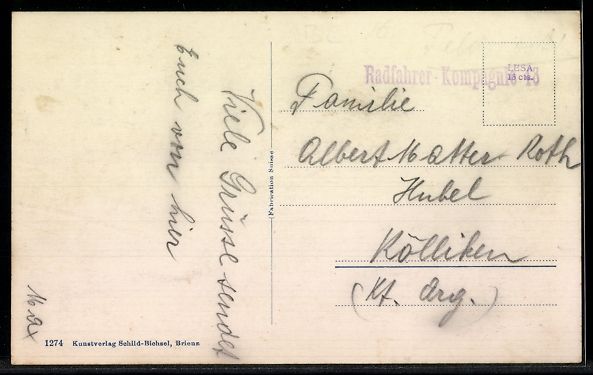 Viele Grüsse sendet
Euch von hier
Max
Radfahrer-Kompagnie 18
LESA
15 cts.
Familie
Albert Matter-Roth
Hubel
Kölliken
(Kt. Arg.)
Fabrication Suisse
1274 Kunstverlag Schild-Bichsel, Brienz